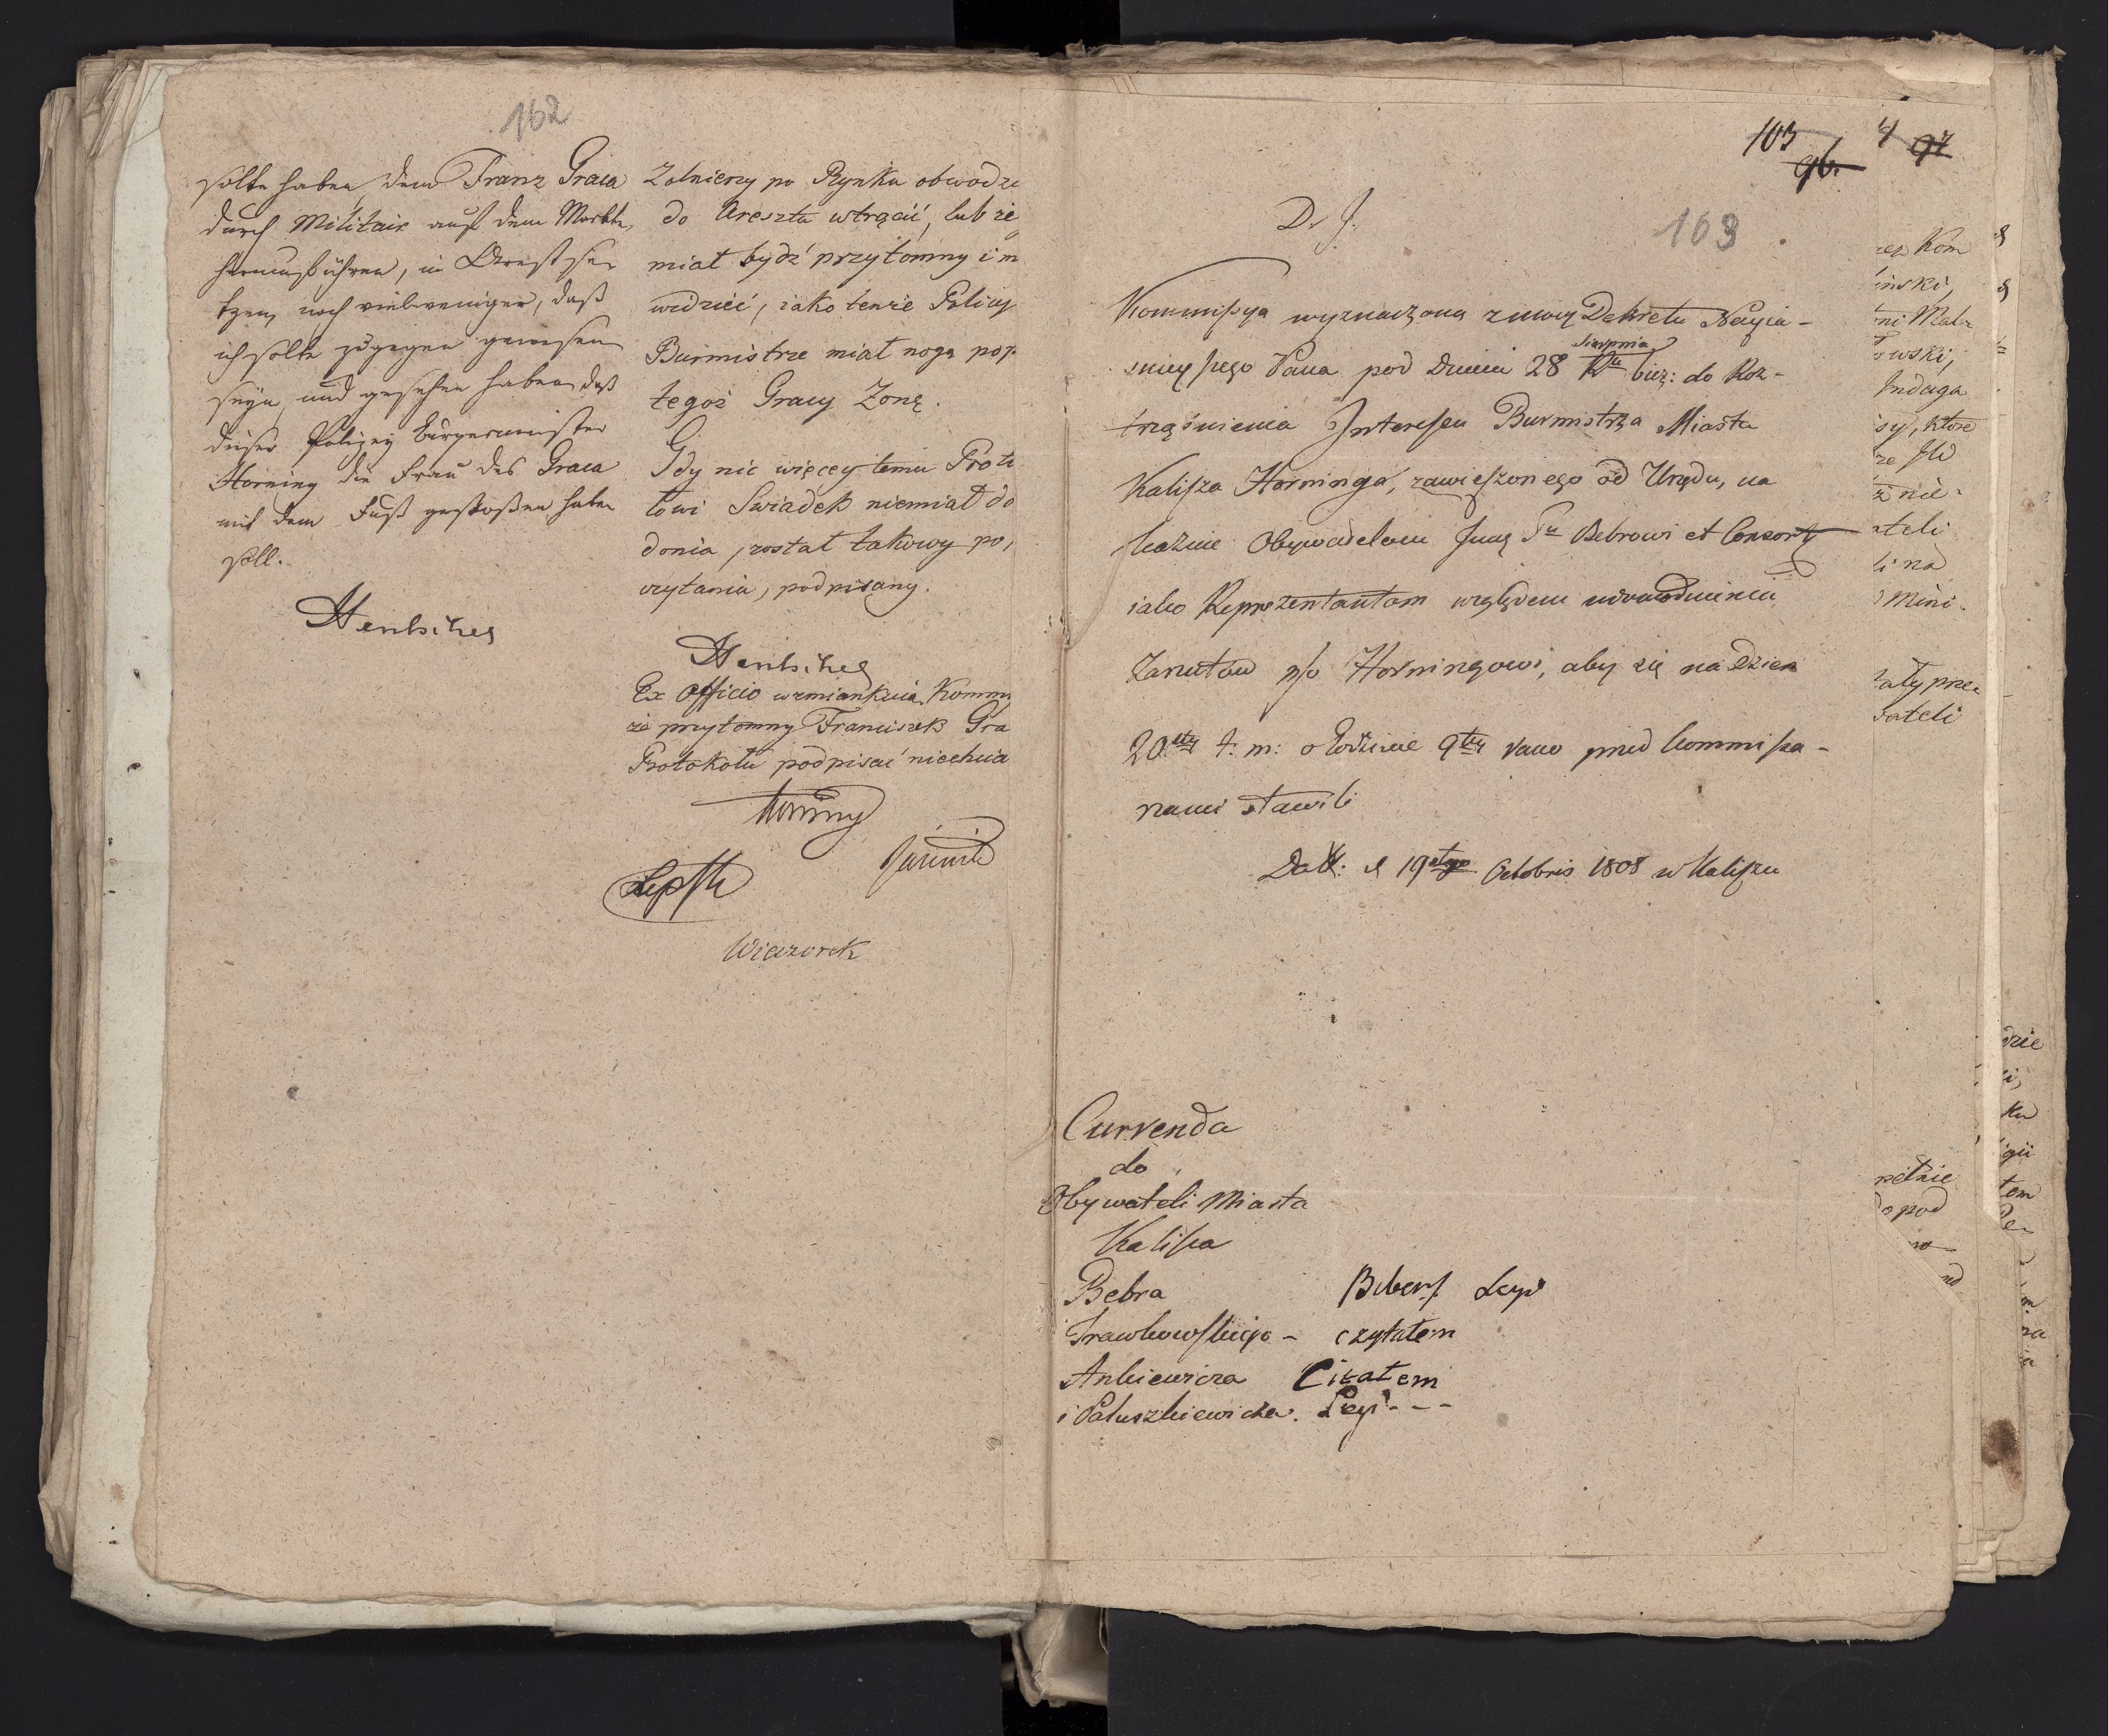 162
solte haben, dem Franz Graca
durch Militair auf dem Markte
herumführen, in Arrest se-
tzen, noch vielweniger, daß
ich solte zugegen gewesen
seyn, und gesehen haben daß
dieser Polizey Bürgermeister
Horning die Frau des Graca
mit dem Fuß gestoßen haben
soll.
Hentschel
Zolnierzy po Rynku obwodzi
do Aresztu wtrącić, lub że
miał bydź przytomny i m
widzieć, iako tenże Policy
Burmistrz miał nogą pop
tegoż Gracy Zonę.
Gdy nic więcey temu Proto
łowi Swiadek niemiał do
donia, został takowy po,
czytania, podpisany.
Hentschel
Ex Officio wzmiankuia Kommi
że przytomny Franciszek Gra
Protokołu podpisać niechcia
Horning
Wieczorek
103
96.
4 97
163
D. J.
Kommissya wyznaczona z mocy Dekretu Nayia-
snieyszego Pana pod Dniem 28
Sierpnia
bież: do Roz-
trząśnienia Interessu Burmistrza Miasta
Kalisza Horninga, zawieszonego od Urzędu, na
kazuie Obywatelom Bebrowi et Consort
iako Reprezentantom względem udowodnienia
Zarzutów p/o Horningowi, aby się na Dzień
20. t: m: o Godzinie 9tey rano przed Kommissa-
rzami stawili
Datt: d 19 Octobris 1808 w Kaliszu
Currenda
do
Obywateli Miasta
Kalisza
Bebra
Trawkowskiego - czytałem
Ankiewicza Citałem
i Paluszkiewicza.
rez Kom
inski,
ni Mat
owski,
Indaga
sy, które
ze
ż nie-
ateli
li na
Mini-
ały prze
wateli
pełnie
o pod
no